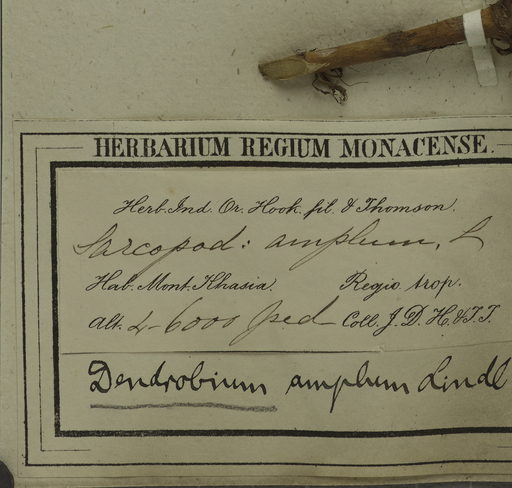 HERBARIUM REGIUM MONACENSE.
Herb. Ind. Or. Hook. fil. & Thomson.
Sarcopod: amplum, L
Hab. Mont. Khasia. Regio trop.
Alt. 4-6000 ped Coll. J. D. H. & T. T.
Dendrobium amplum Lindl